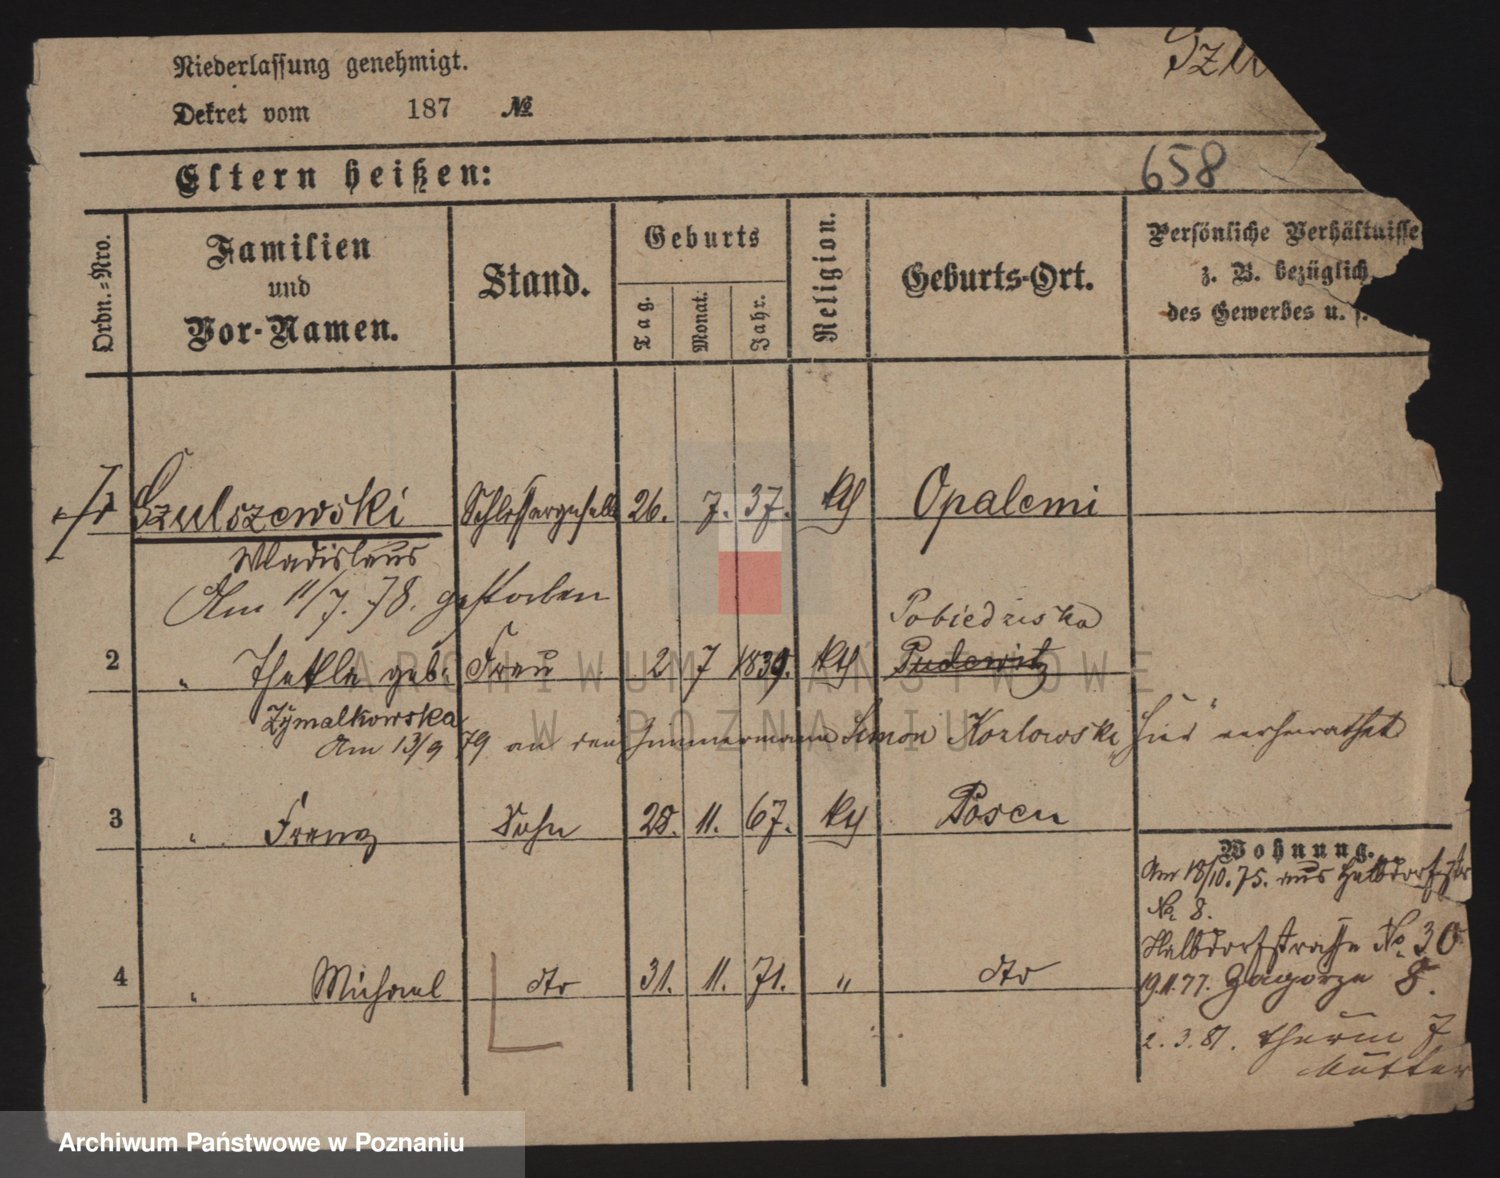 Niederlassung genehmigt.
Dekret vom 187 №
Szu
Eltern heißen:
658
Ordn.=Nro.
Familien
und
Vor-Namen.
Stand.
Geburts
Tag.
Monat.
Jahr.
Religion.
Geburts-Ort.
Persönliche Verhältnisse
z. B. bezüglich
des Gewerbes u. s.
1 Szulszewski Schlossergeselle 26. 7. 37. kth Opaleni
Wladislaus
Am 11/7. 78. gestorben
Pobiedziska
2 " Thekla geb. Frau 2 7 1839. kth Pudewitz
Zymalkowska
Am 13/9 79 an den Zimmermann Simon Kozlowski hier verheirathet
3 " Franz Sohn 28. 11. 67. kth Posen
4 " Michael dto 31. 11. 71. " dto
Wohnung.
Am 18/10. 75. aus Halbdorfstr
No 8.
Halbdorfstrasse No. 30
19.11.77. Zagorze 8.
2. 3. 81. Thurm 7
Mutter
ARCHIWUM PAŃSTWOWE
W POZNANIU
Archiwum Państwowe w Poznaniu